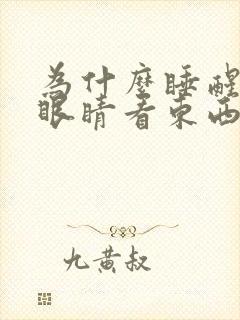 為什麼睡醒
眼睛看東西
九黃叔